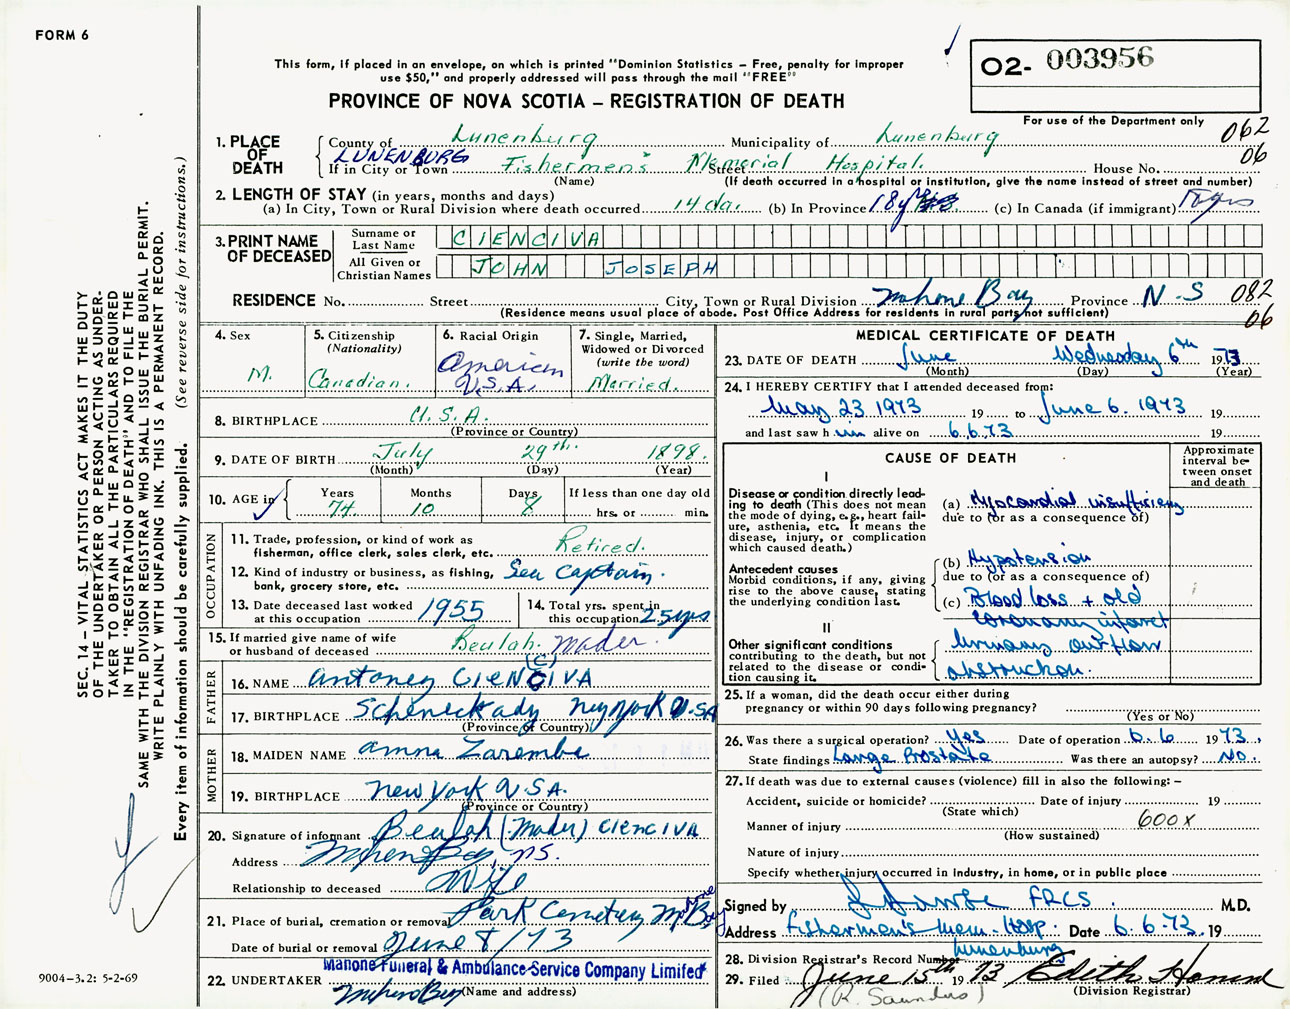 FORM 6
SEC. 14 – VITAL STATISTICS ACT MAKES IT THE DUTY
OF THE UNDERTAKER OR PERSON ACTING AS UNDER-
TAKER TO OBTAIN ALL THE PARTICULARS REQUIRED
IN THE "REGISTRATION OF DEATH" AND TO FILE THE
SAME WITH THE DIVISION REGISTRAR WHO SHALL ISSUE THE BURIAL PERMIT.
WRITE PLAINLY WITH UNFADING INK. THIS IS A PERMANENT RECORD.
Every item of information should be carefully supplied. (See reverse side for instructions.)
9004-3.2: 5-2-69
This form, if placed in an envelope, on which is printed "Dominion Statistics – Free, penalty for improper
use $50," and properly addressed will pass through the mail "FREE"
PROVINCE OF NOVA SCOTIA – REGISTRATION OF DEATH
O2- 003956
For use of the Department only
062
06
1. PLACE OF DEATH
County of Lunenburg Municipality of Lunenburg
LUNENBURG
If in City or Town Fishermen's Memorial Hospital. Street House No.
(Name) (If death occurred in a hospital or institution, give the name instead of street and number)
2. LENGTH OF STAY (in years, months and days)
(a) In City, Town or Rural Division where death occurred 14 da. (b) In Province 18 yrs (c) In Canada (if immigrant)
3. PRINT NAME OF DECEASED
Surname or Last Name CIENCIVA
All Given or Christian Names JOHN JOSEPH
RESIDENCE No. Street City, Town or Rural Division Mahone Bay Province N.S 082
06
(Residence means usual place of abode. Post Office Address for residents in rural parts not sufficient)
4. Sex
M.
5. Citizenship
(Nationality)
Canadian.
6. Racial Origin
American
U.S.A.
7. Single, Married,
Widowed or Divorced
(write the word)
Married.
8. BIRTHPLACE U.S.A.
(Province or Country)
9. DATE OF BIRTH July 29th 1898.
(Month) (Day) (Year)
10. AGE in Years 74 Months 10 Days 8 If less than one day old
hrs. or min.
OCCUPATION
11. Trade, profession, or kind of work as
fisherman, office clerk, sales clerk, etc. Retired.
12. Kind of industry or business, as fishing,
bank, grocery store, etc. Sea Captain.
13. Date deceased last worked
at this occupation 1955
14. Total yrs. spent in
this occupation 25 yrs.
15. If married give name of wife
or husband of deceased Beulah. Mader.
FATHER
16. NAME Antoney CIENCIVA
(C)
17. BIRTHPLACE Scheneckady New York U.SA
(Province or Country)
MOTHER
18. MAIDEN NAME Anna Zarembe
19. BIRTHPLACE New York U.S.A.
(Province or Country)
20. Signature of informant Beulah (Mader) CIENCIVA
Address Mahone Bay, NS.
Relationship to deceased Wife
21. Place of burial, cremation or removal Park Cemetery Mahone Bay
Date of burial or removal June 8/73
22. UNDERTAKER Mahone Funeral & Ambulance Service Company Limited
Mahone Bay (Name and address)
MEDICAL CERTIFICATE OF DEATH
23. DATE OF DEATH June Wednesday 6th 1973
(Month) (Day) (Year)
24. I HEREBY CERTIFY that I attended deceased from:
May 23 1973 19 to June 6. 1973 19
and last saw h im alive on 6.6.73 19
CAUSE OF DEATH
Approximate
interval be-
tween onset
and death
I
Disease or condition directly lead-
ing to death (This does not mean
the mode of dying, e.g., heart fail-
ure, asthenia, etc. It means the
disease, injury, or complication
which caused death.)
(a) Myocardial insufficiency
due to (or as a consequence of)
Antecedent causes
Morbid conditions, if any, giving
rise to the above cause, stating
the underlying condition last.
(b) Hypotension
due to (or as a consequence of)
(c) Blood loss + old
coronary infarct
II
Other significant conditions
contributing to the death, but not
related to the disease or condi-
tion causing it.
Urinary outflow
obstruction.
25. If a woman, did the death occur either during
pregnancy or within 90 days following pregnancy?
(Yes or No)
26. Was there a surgical operation? Yes Date of operation 6.6 1973.
State findings Large Prostate Was there an autopsy? No.
27. If death was due to external causes (violence) fill in also the following: –
Accident, suicide or homicide? Date of injury 19
(State which)
Manner of injury 600x
(How sustained)
Nature of injury
Specify whether injury occurred in industry, in home, or in public place
Signed by FRCS. M.D.
Address Fishermen's Mem. Hosp. Date 6.6.73. 19
Lunenburg
28. Division Registrar's Record Number
29. Filed June 15th 1973 Edith
(R. Saunders) (Division Registrar)